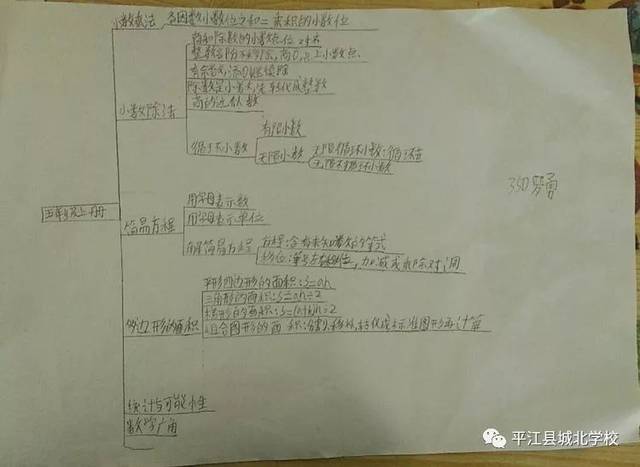 小数乘法 各因数小数位之和=乘积的小数位
商和除数的小数点位对齐
整数部分不够除,商0,点上小数点
有余数,添0继续除
除数是小数,先转化成整数
商的近似数
小数除法
有限小数
循环小数
无限小数 无限循环小数:循环节
无限不循环小数
350 勇
五年级上册
用字母表示数
简易方程
用字母表示单位
解简易方程 方程:含有未知数的等式
移位:等号左右移位,加减或乘除对调
平行四边形的面积:S=ah
三角形的面积:S=ah÷2
梯形的面积:S=(a+b)h÷2
多边形的面积
组合图形的面积:割、移补,转化成标准图形再计算
统计与可能性
数学广角
平江县城北学校